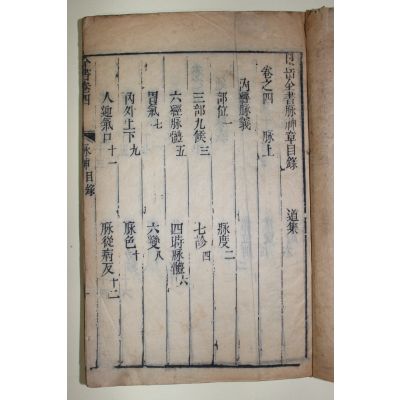 景岳全書脉神章目錄 道集
卷之四 脉上
內經脉義
部位一 脉度二
三部九候三 七診四
六經脉體五 四時脉體六
胃氣七 六變八
內外上下九 脉色十
人迎氣口十一 脉從病反十二
全書卷四 脉神目錄